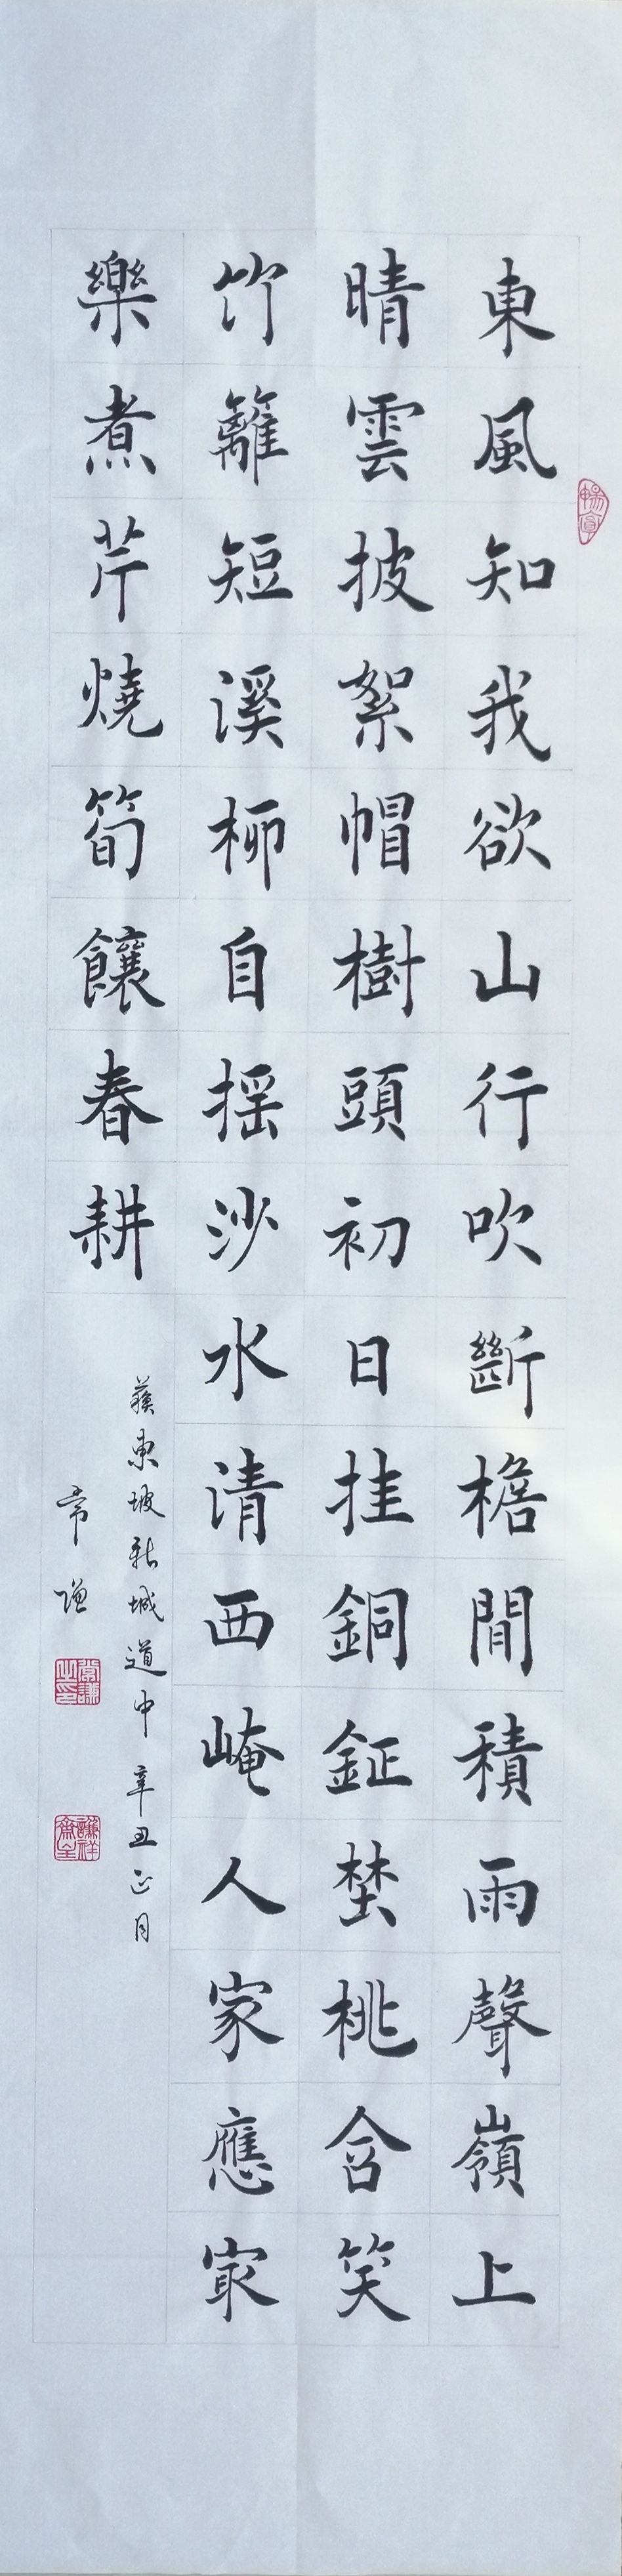 東風知我欲山行吹斷檐間積雨聲嶺上
晴雲披絮帽樹頭初日挂銅鉦埜桃含笑
竹籬短溪柳自摇沙水清西崦人家應㝡
樂煮芹燒筍饟春耕
蘓東坡新城道中 辛丑正月
常謙
常謙之印